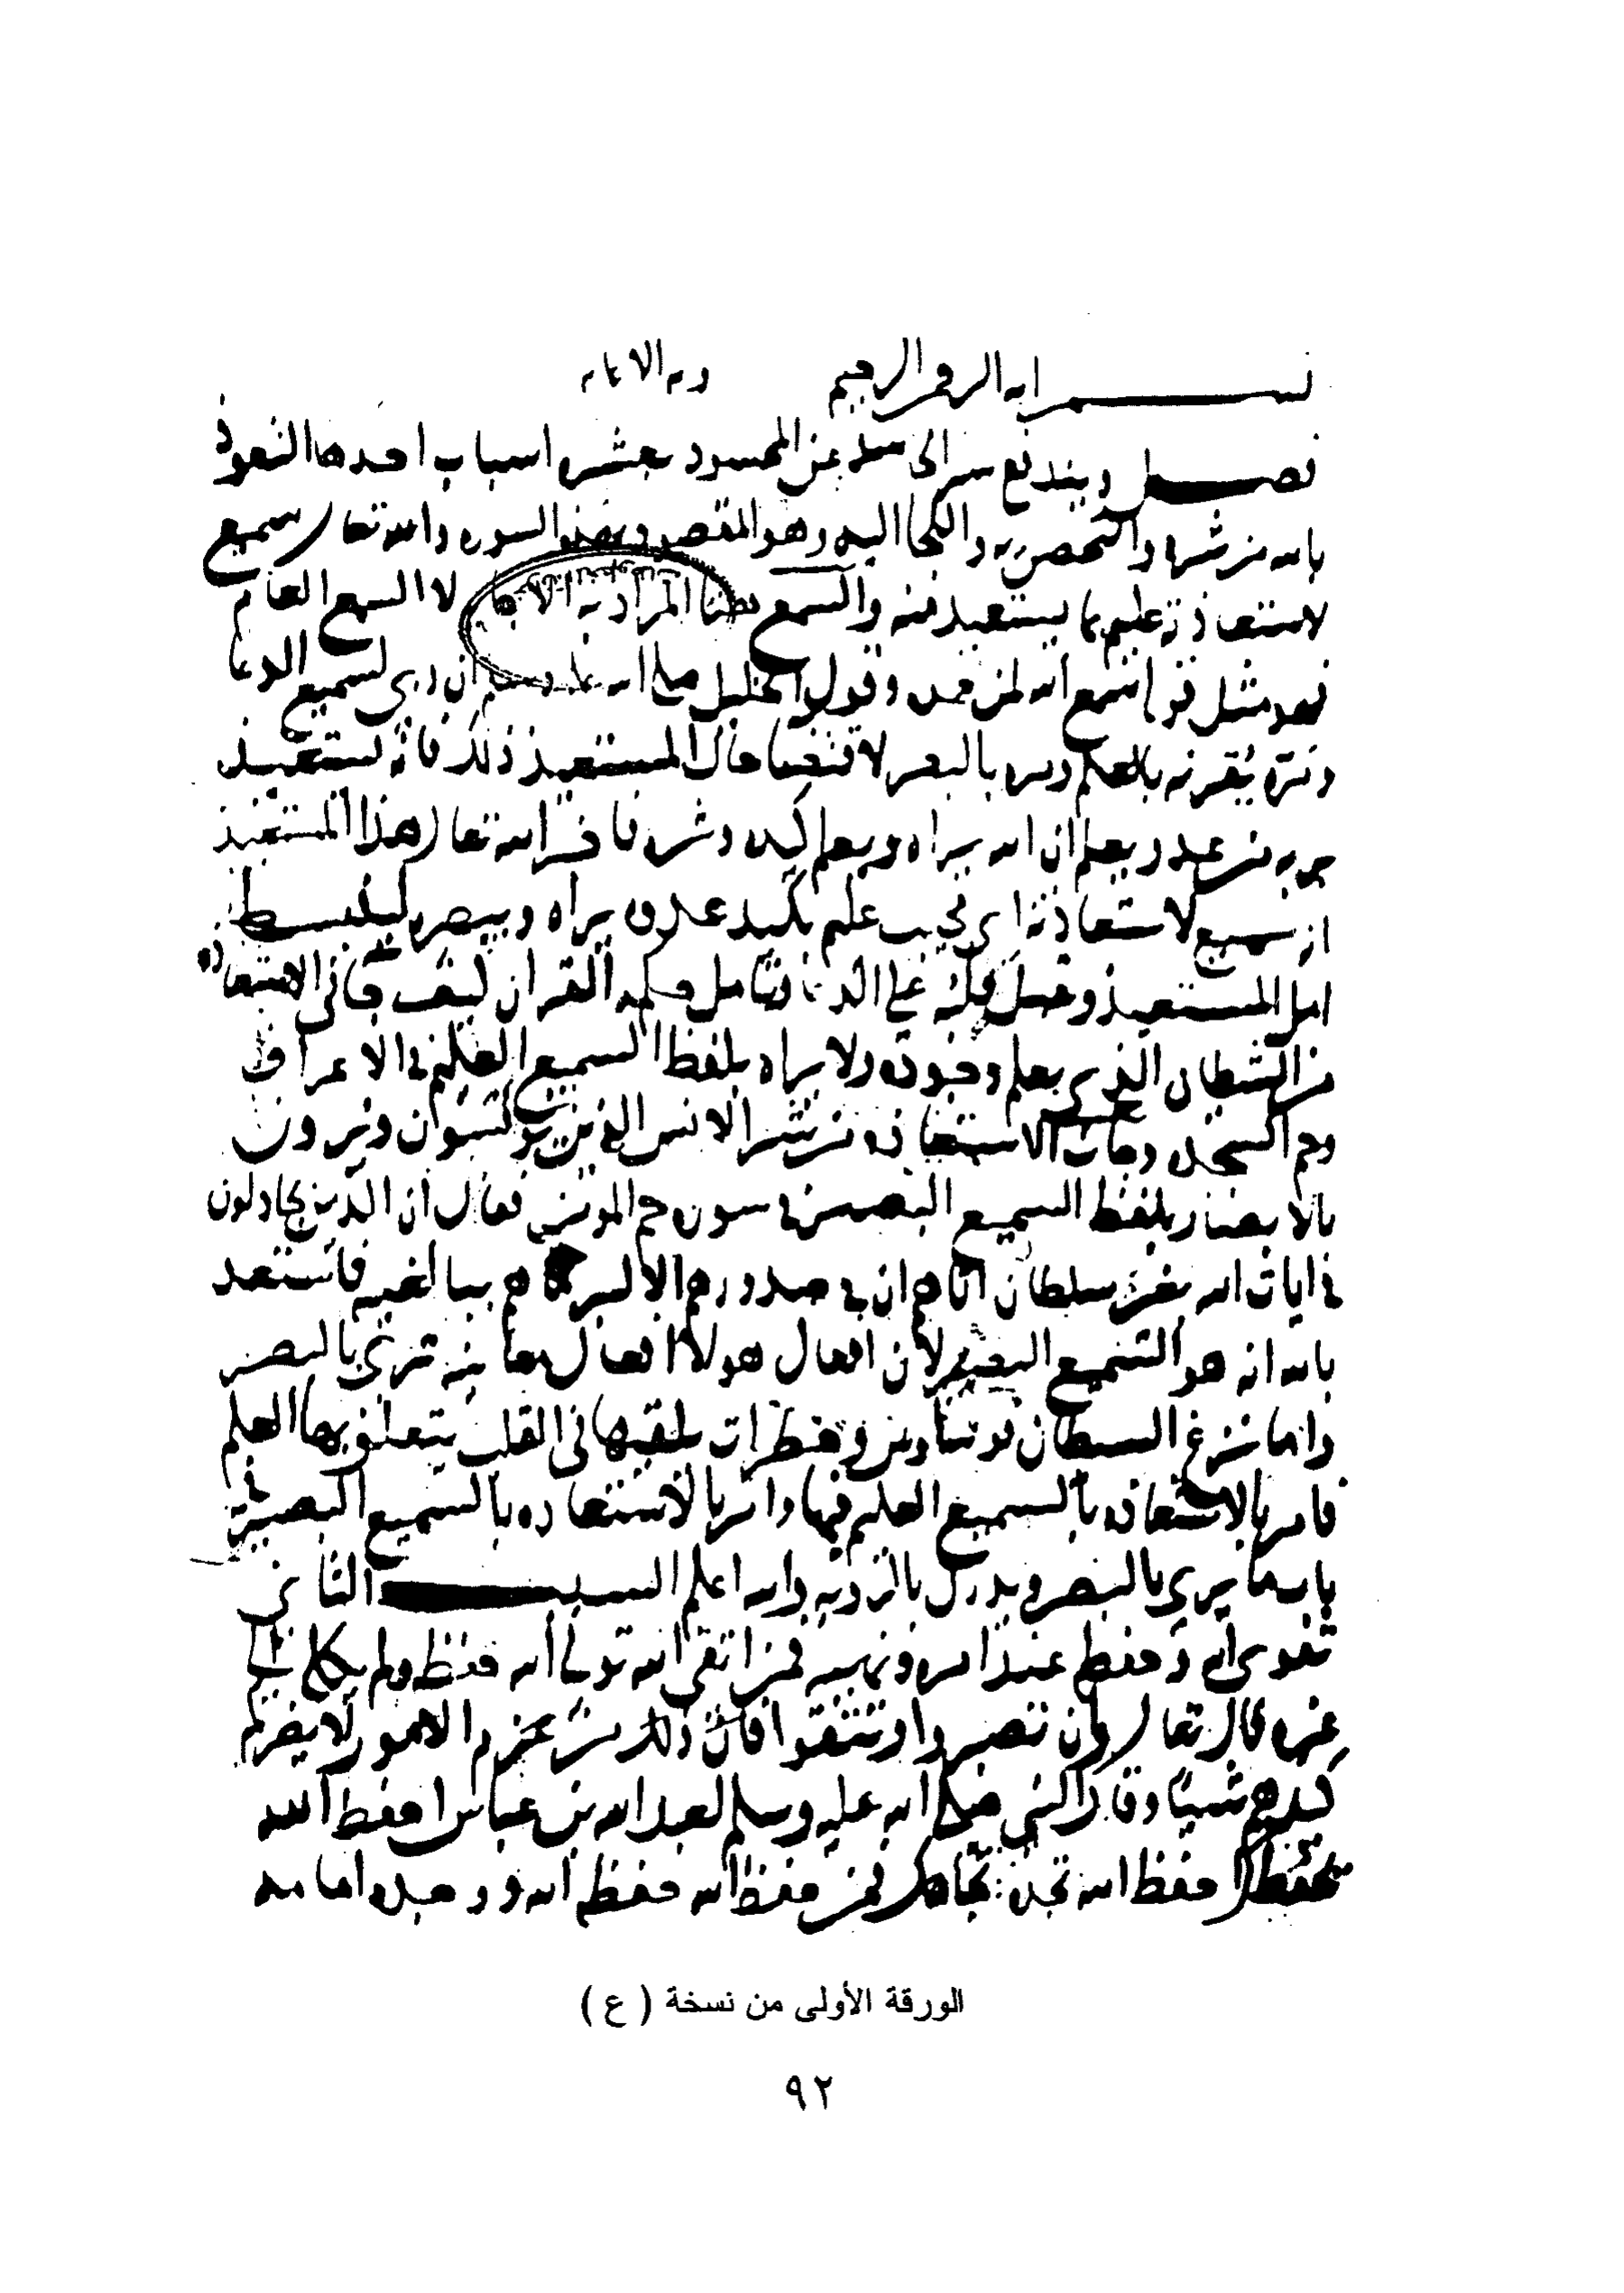 بسم الله الرحمن الرحيم وبه الاعانه
فصل ويندفع شر الحاسد عن المحسود بعشره اسباب احدها التعوذ
بالله من شره والتحصن به واللجا اليه وهو المقصود بهذه السوره والله تعالى سميع
لاستعاذته عليم بما يستعيذ منه والسمع هنا المراد به الاجابه لا السمع العام
فهو مثل قوله سمع الله لمن حمده وقول الخليل صلى الله عليه وسلم ان ربي لسميع الدعا
ومره يقرنه بالعلم ومره بالبصر لاقتضا حال المستعيذ ذلك فانه يستعيذ
به من عدو يعلم ان الله يراه ويعلم كيده وشره فاخبر الله تعالى هذا المستعيذ
انه سميع لاستعاذته اي مجيب عليم بكيد عدوه يراه ويبصره لينبسط
امل المستعيذ ويقبل بقلبه على الدعا وتامل حكمه القران كيف جا في الاستعاذه
من الشيطان الذي يعلم وجوده ولا يراه بلفظ السميع العليم في الاعراف
وحم السجده وجات الاستعاذه من شر الانس الذين يونسون ويرون
بالابصار بلفظ السميع البصير في سوره حم المومن فقال ان الذين يجادلون
في ايات الله بغير سلطان اتاهم ان في صدورهم الا كبر ما هم ببالغيه فاستعذ
بالله انه هو السميع البصير لان افعال هولا افعال معاينه ترى بالبصر
واما نزغ الشيطان فوساوس وخطرات يلقيها في القلب يتعلق بها العلم
فامر بالاستعاذه بالسميع العليم فيها وامر بالاستعاذه بالسميع البصير في
باب ما يرى بالبصر ويدرك بالرويه والله اعلم السبب الثاني
تقوى الله وحفظه عند امره ونهيه فمن اتقى الله تولى الله حفظه ولم يكله الى
غيره قال تعالى وان تصبروا وتتقوا لا يضركم
كيدهم شيئا وقال النبي صلى الله عليه وسلم لعبد الله بن عباس احفظ الله
يحفظك احفظ الله تجده تجاهك فمن حفظ الله حفظه الله ووجده امامه
الورقة الأولى من نسخة ( ع )
٩٢